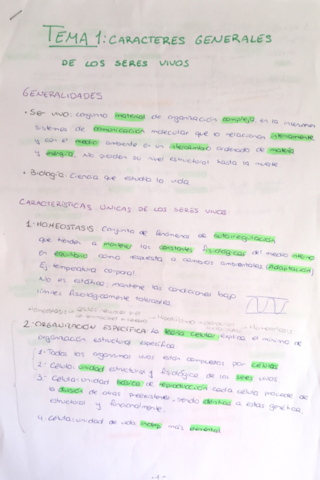 TEMA 1: CARACTERES GENERALES
DE LOS SERES VIVOS
GENERALIDADES
• Ser vivo: conjunto material de organización compleja, en la
sistemas de comunicación molecular que lo relacionan internamente
y con el medio ambiente en un intercambio ordenado de materia
y energía. No pierden su nivel estructural hasta la muerte
• Biología: Ciencia que estudia la vida
CARACTERÍSTICAS ÚNICAS DE LOS SERES VIVOS
1-HOMEOSTASIS: Conjunto de fenómenos de autorregulación
que tienden a mantener las constantes fisiológicas del medio interno
en equilibrio como respuesta a cambios ambientales (Adaptación)
Ej: temperatura corporal.
No es estático: mantiene las condiciones bajo
límites fisiológicamente tolerables
2-ORGANIZACIÓN ESPECÍFICA: la teoría celular explica el
organización estructural específica
1- Todos los organismos vivos están compuestos por células
2- Célula: unidad estructural y fisiológica de los seres vivos
3- Célula: unidad básica de reproducción: cada célula procede de
la división de otras preexistentes, siendo idénticas a estas genética,
estructural y funcionalmente.
4. Célula: unidad de vida más elemental
-1-